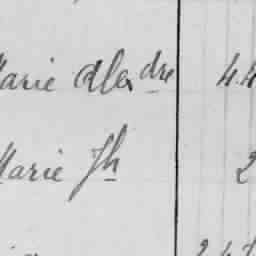 Marie Alexdre 44
Marie Jh 2